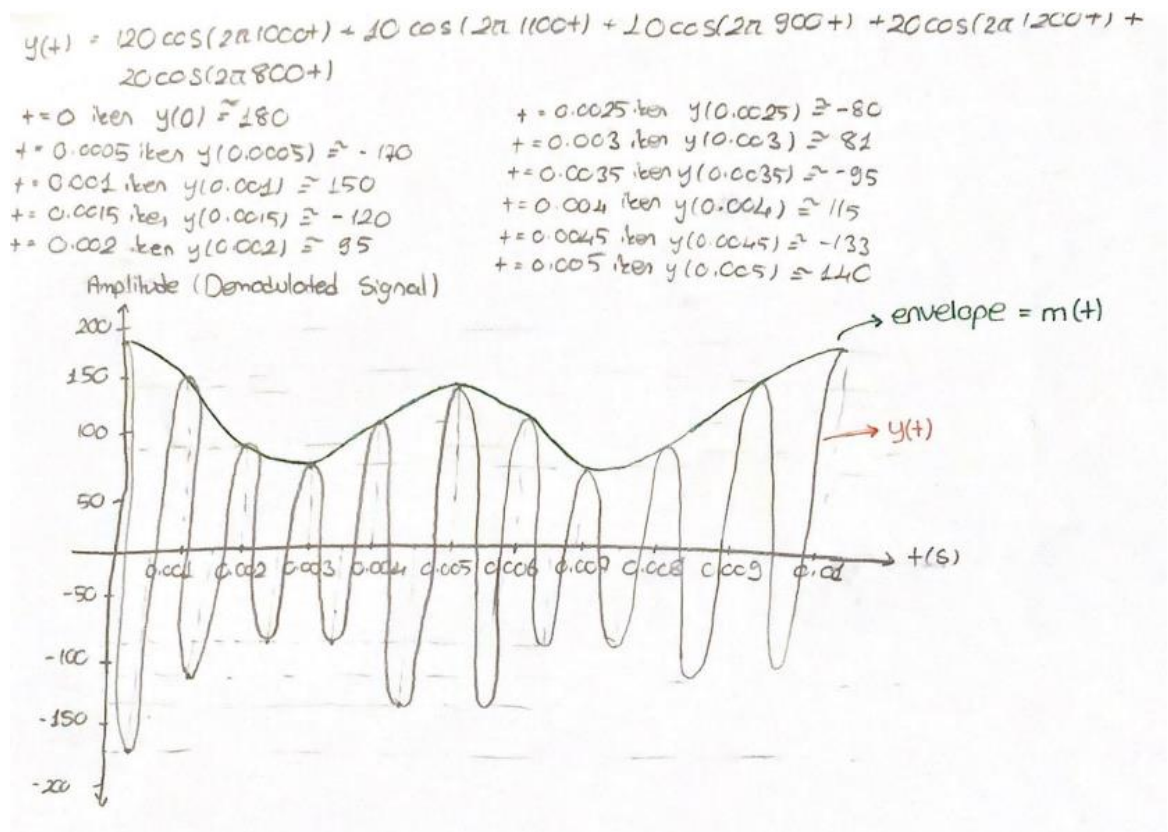 y(t) = 120cos(2π1000t) + 10 cos(2π1100t) + 10cos(2π 900t) + 20cos(2π1200t) +
20cos(2π800t)
t=0 iken y(0) ≅ 180
t=0.0005 iken y(0.0005) ≅ -170
t=0.001 iken y(0.001) ≅ 150
t=0.0015 iken y(0.0015) ≅ -120
t=0.002 iken y(0.002) ≅ 95
t=0.0025 iken y(0.0025) ≅ -80
t=0.003 iken y(0.003) ≅ 81
t=0.0035 iken y(0.0035) ≅ -95
t=0.004 iken y(0.004) ≅ 115
t=0.0045 iken y(0.0045) ≅ -133
t=0.005 iken y(0.005) ≅ 140
Amplitude (Demodulated Signal)
envelope = m(t)
200
150
100
y(t)
50
0.001 0.002 0.003 0.004 0.005 0.006 0.007 0.008 0.009 0.01
t(s)
-50
-100
-150
-200